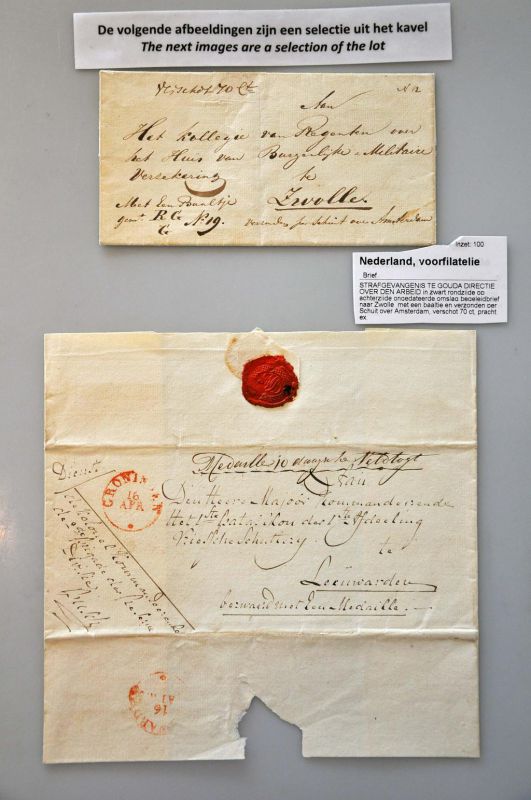 De volgende afbeeldingen zijn een selectie uit het kavel
The next images are a selection of the lot
Verschot 70 Ct
Aan
N 12
Het kollegie van Regenten over
het Huis van Burgerlijke & Militaire
Verzekering
te
Zwolle
Met Een Baaltje
gemt RG No 19.
G
verzonden per Schuit over Amsterdam
Inzet: 100
Nederland, voorfilatelie
Brief
STRAFGEVANGENIS TE GOUDA DIRECTIE
OVER DEN ARBEID in zwart rondzijde op
achterzijde ongedateerde omslag begeleidbrief
naar Zwolle met een baaltje en verzonden per
Schuit over Amsterdam, verschot 70 ct, pracht
ex.
Medaille 10 daagsche Veldtogt
Aan
Dienst
GRONINGEN
16
APR
Den Heere Majoor Kommanderende
Het 1ste Bataillon der 1ste Afdeeling
Vriesche Schuttery
te
Leeuwarden
bezwaard met Een Medaille.
16